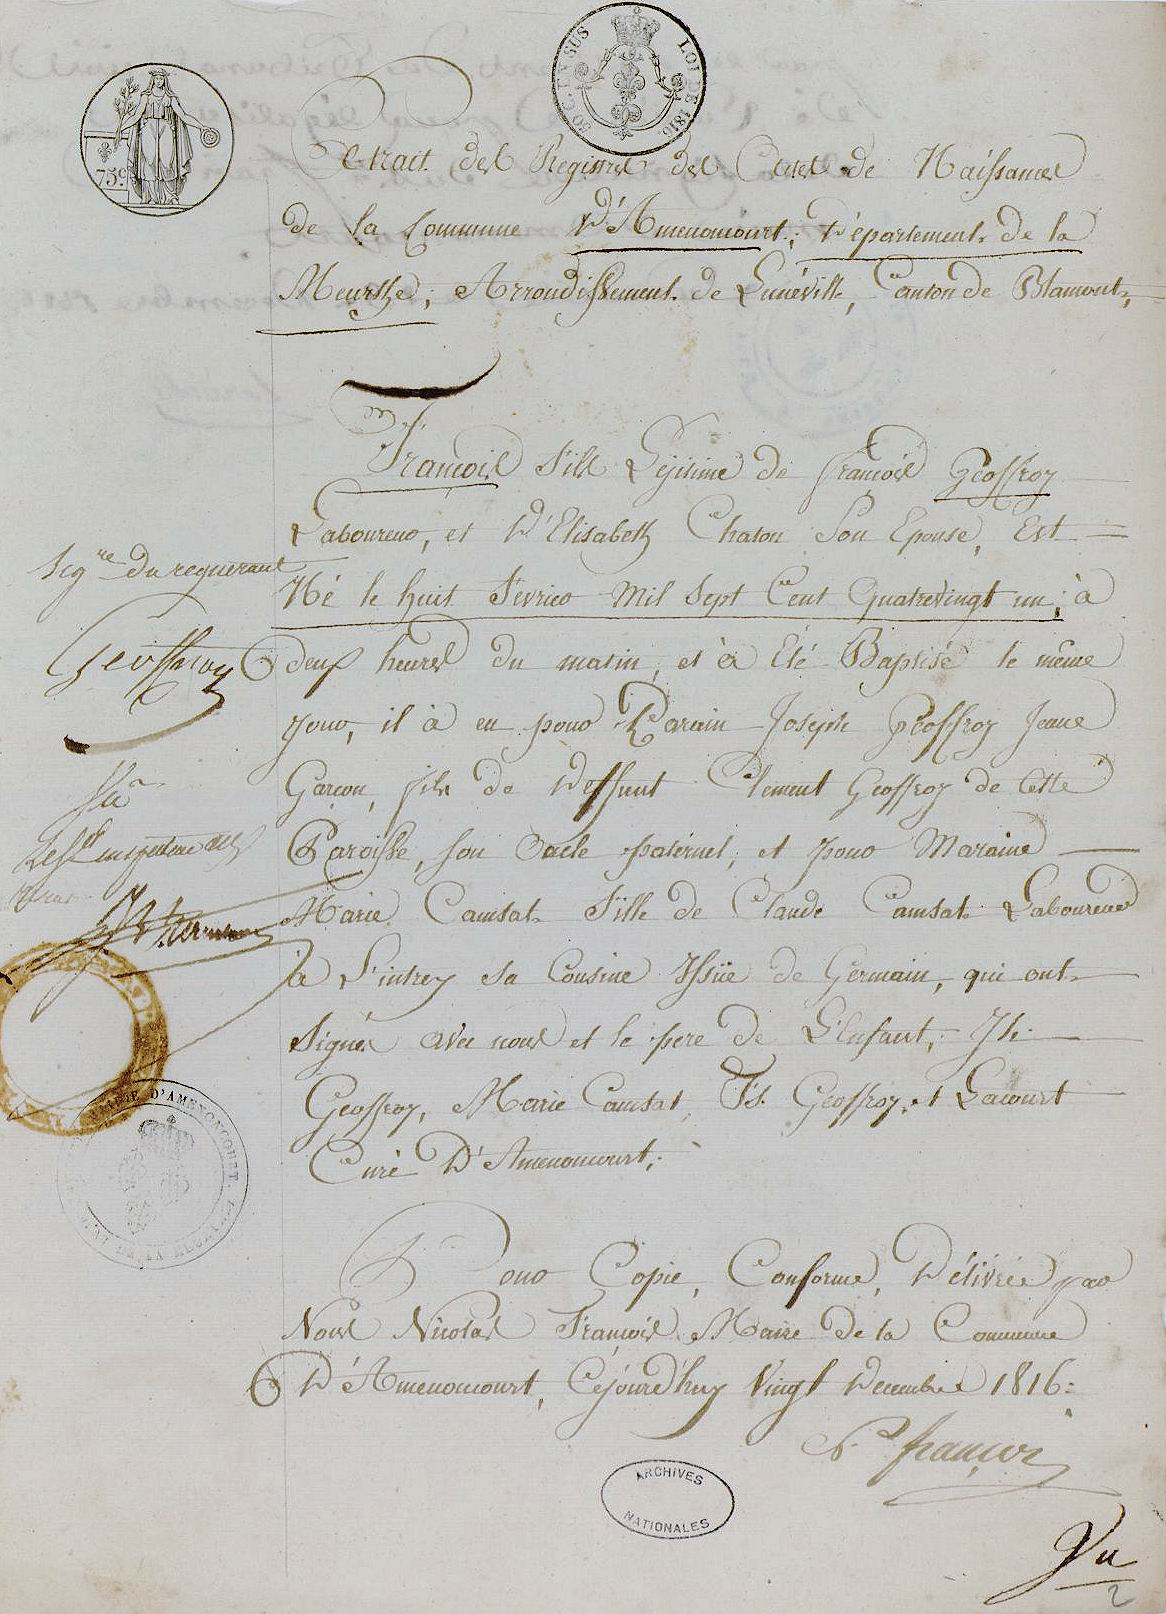 75c
50 C. EN SUS LOI DE 1816.
Extrait des Registres des Actes de Naissances
de la Commune D'Amenoncourt; Département de la
Meurthe; Arrondissement de Lunéville, Canton de Blamont,
François Fils Légitime de François Geoffroy
Laboureur, et D'Elisabeth Chaton Son Epouse, Est
Né le huit Février Mil Sept Cent Quatrevingt un; à
deux heures du matin, et à Eté Baptisé le même
jour, il à eu pour Parain Joseph Geoffroy Jeune
Garçon, fils de Deffunt Clement Geoffroy de Cette
Paroisse, son Oncle paternel; et pour Maraine
Marie Camsat Fille de Claude Camsat Laboureur
à Lintrey sa Cousine Issüe de Germain, qui ont
Signés avec nous et le pere de L'Enfant; Jh.
Geoffroy, Marie Camsat, Fs. Geoffroy, et Lacourt
Curé D'Amenoncourt;
Pour Copie, Conforme, Délivrée par
Nous Nicolas François Maire de la Commune
D'Amenoncourt, Cejourd'huy Vingt Decembre 1816:
N. françois
Sigre du requerant
Geoffroy
Vu
MAIRIE D'AMENONCOURT.
DE LA MEURTHE
ARCHIVES
NATIONALES
Vu
2